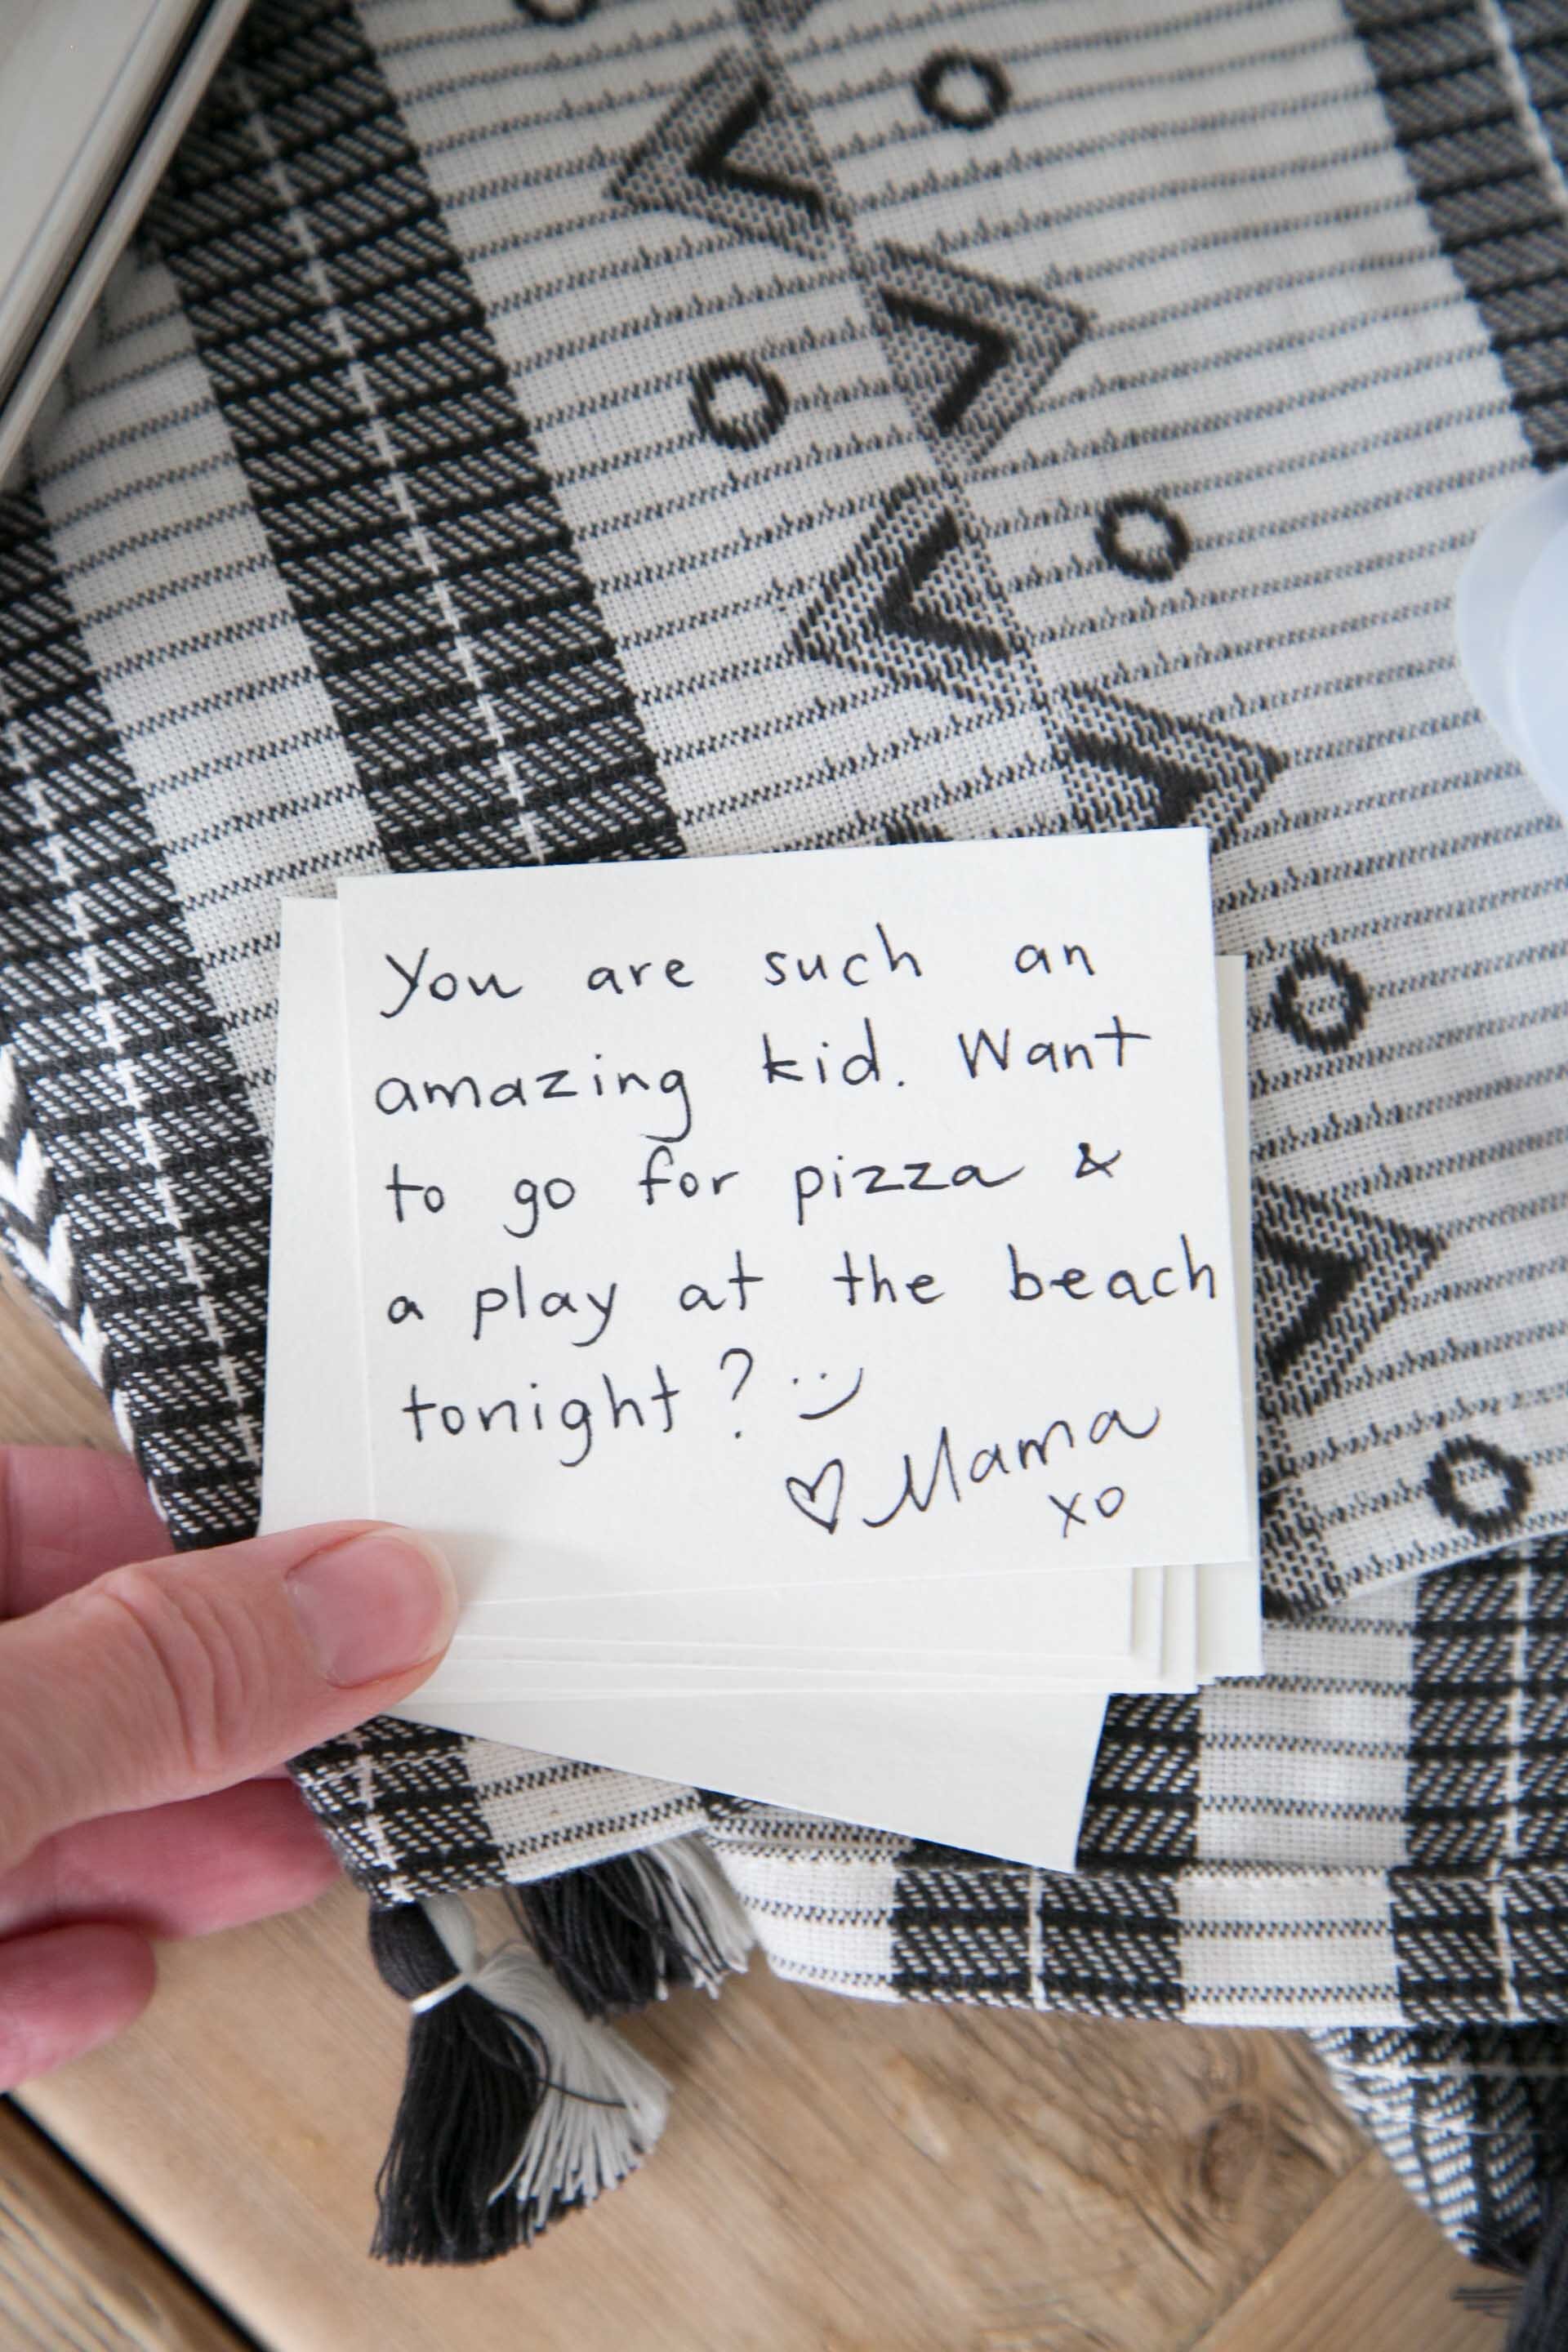 You are such an
amazing kid. Want
to go for pizza &
a play at the beach
tonight? :)
♡ Mama
xo